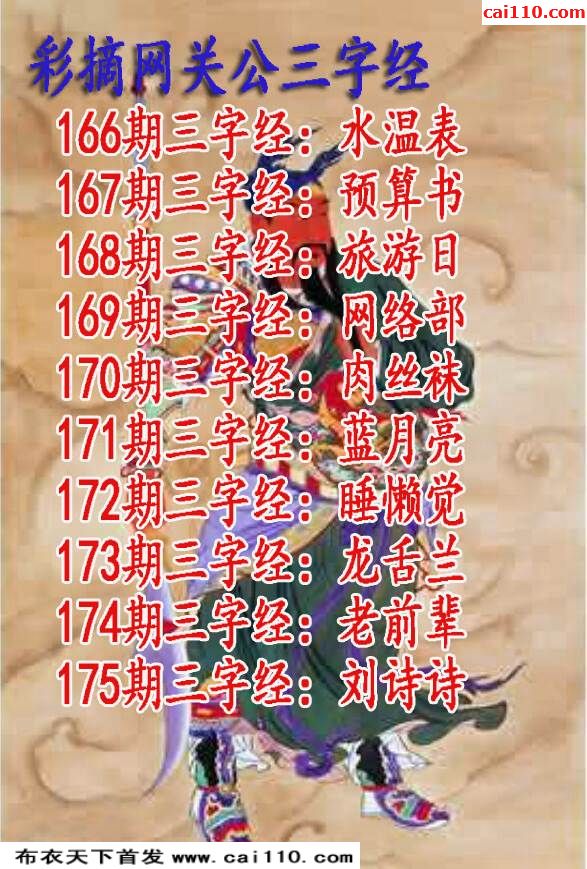 cai110.com
彩摘网关公三字经
166期三字经：水温表
167期三字经：预算书
168期三字经：旅游日
169期三字经：网络部
170期三字经：肉丝袜
171期三字经：蓝月亮
172期三字经：睡懒觉
173期三字经：龙舌兰
174期三字经：老前辈
175期三字经：刘诗诗
布衣天下首发 www.cai110.com